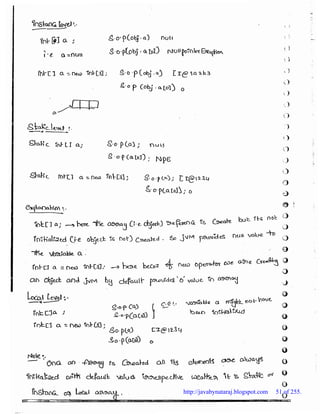 Instance level:-
int [] a ; S.o.p(obj.a) null
i.e a=null S.o.p(obj.a[0]) NullPointerException
int [] a = new int[3]; S.o.p(obj.a) [I@1a2b3
S.o.p (obj.a[0]) 0
a
Static level:-
Static int [] a; S.o.p(a); null
S.o.p(a[0]); NPE
Static int[] a = new int[3]; S.o.p(a); [I@1234
S.o.p(a[0]); 0
Explanation:-
int[] a; → here the array (i.e object) is create but its not
initialized (i.e object is not) created. So JVM provides null value to
the variable a.
int[] a = new int[3]; → here becoz of new operator are creating
an object and JVM by default provides '0' value in array
Local level:-
int []a ; S.o.p(a) S.o.p(a[0]) } C.E:- variable a might not have been initialized
int[] a = new int[3];
S.o.p(a) [I@1234
S.o.p(a[0]) 0
Note:-
Once an array is created all its elements are always
initialized with default values irrespective whether it is static or
instance or local array.
http://javabynataraj.blogspot.com 51 of 255.